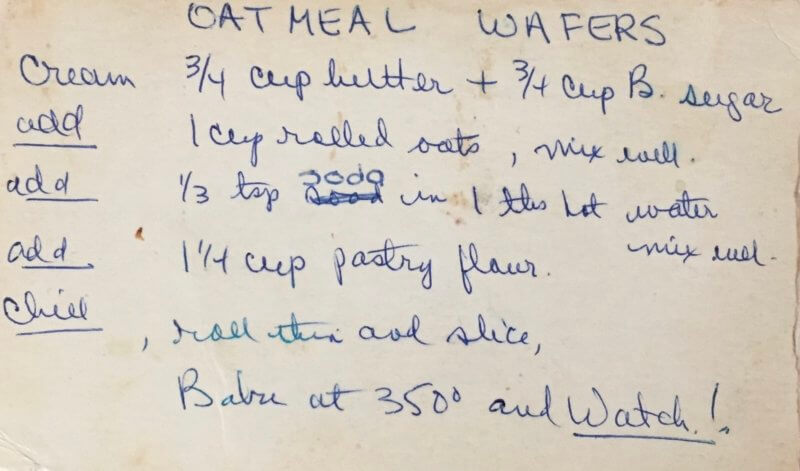 OATMEAL WAFERS
Cream 3/4 cup butter + 3/4 cup B. sugar
add 1 cup rolled oats, mix well.
add 1/3 tsp soda in 1 tbs hot water
mix well.
add 1 1/4 cup pastry flour.
Chill, roll thin and slice,
Bake at 350° and Watch!